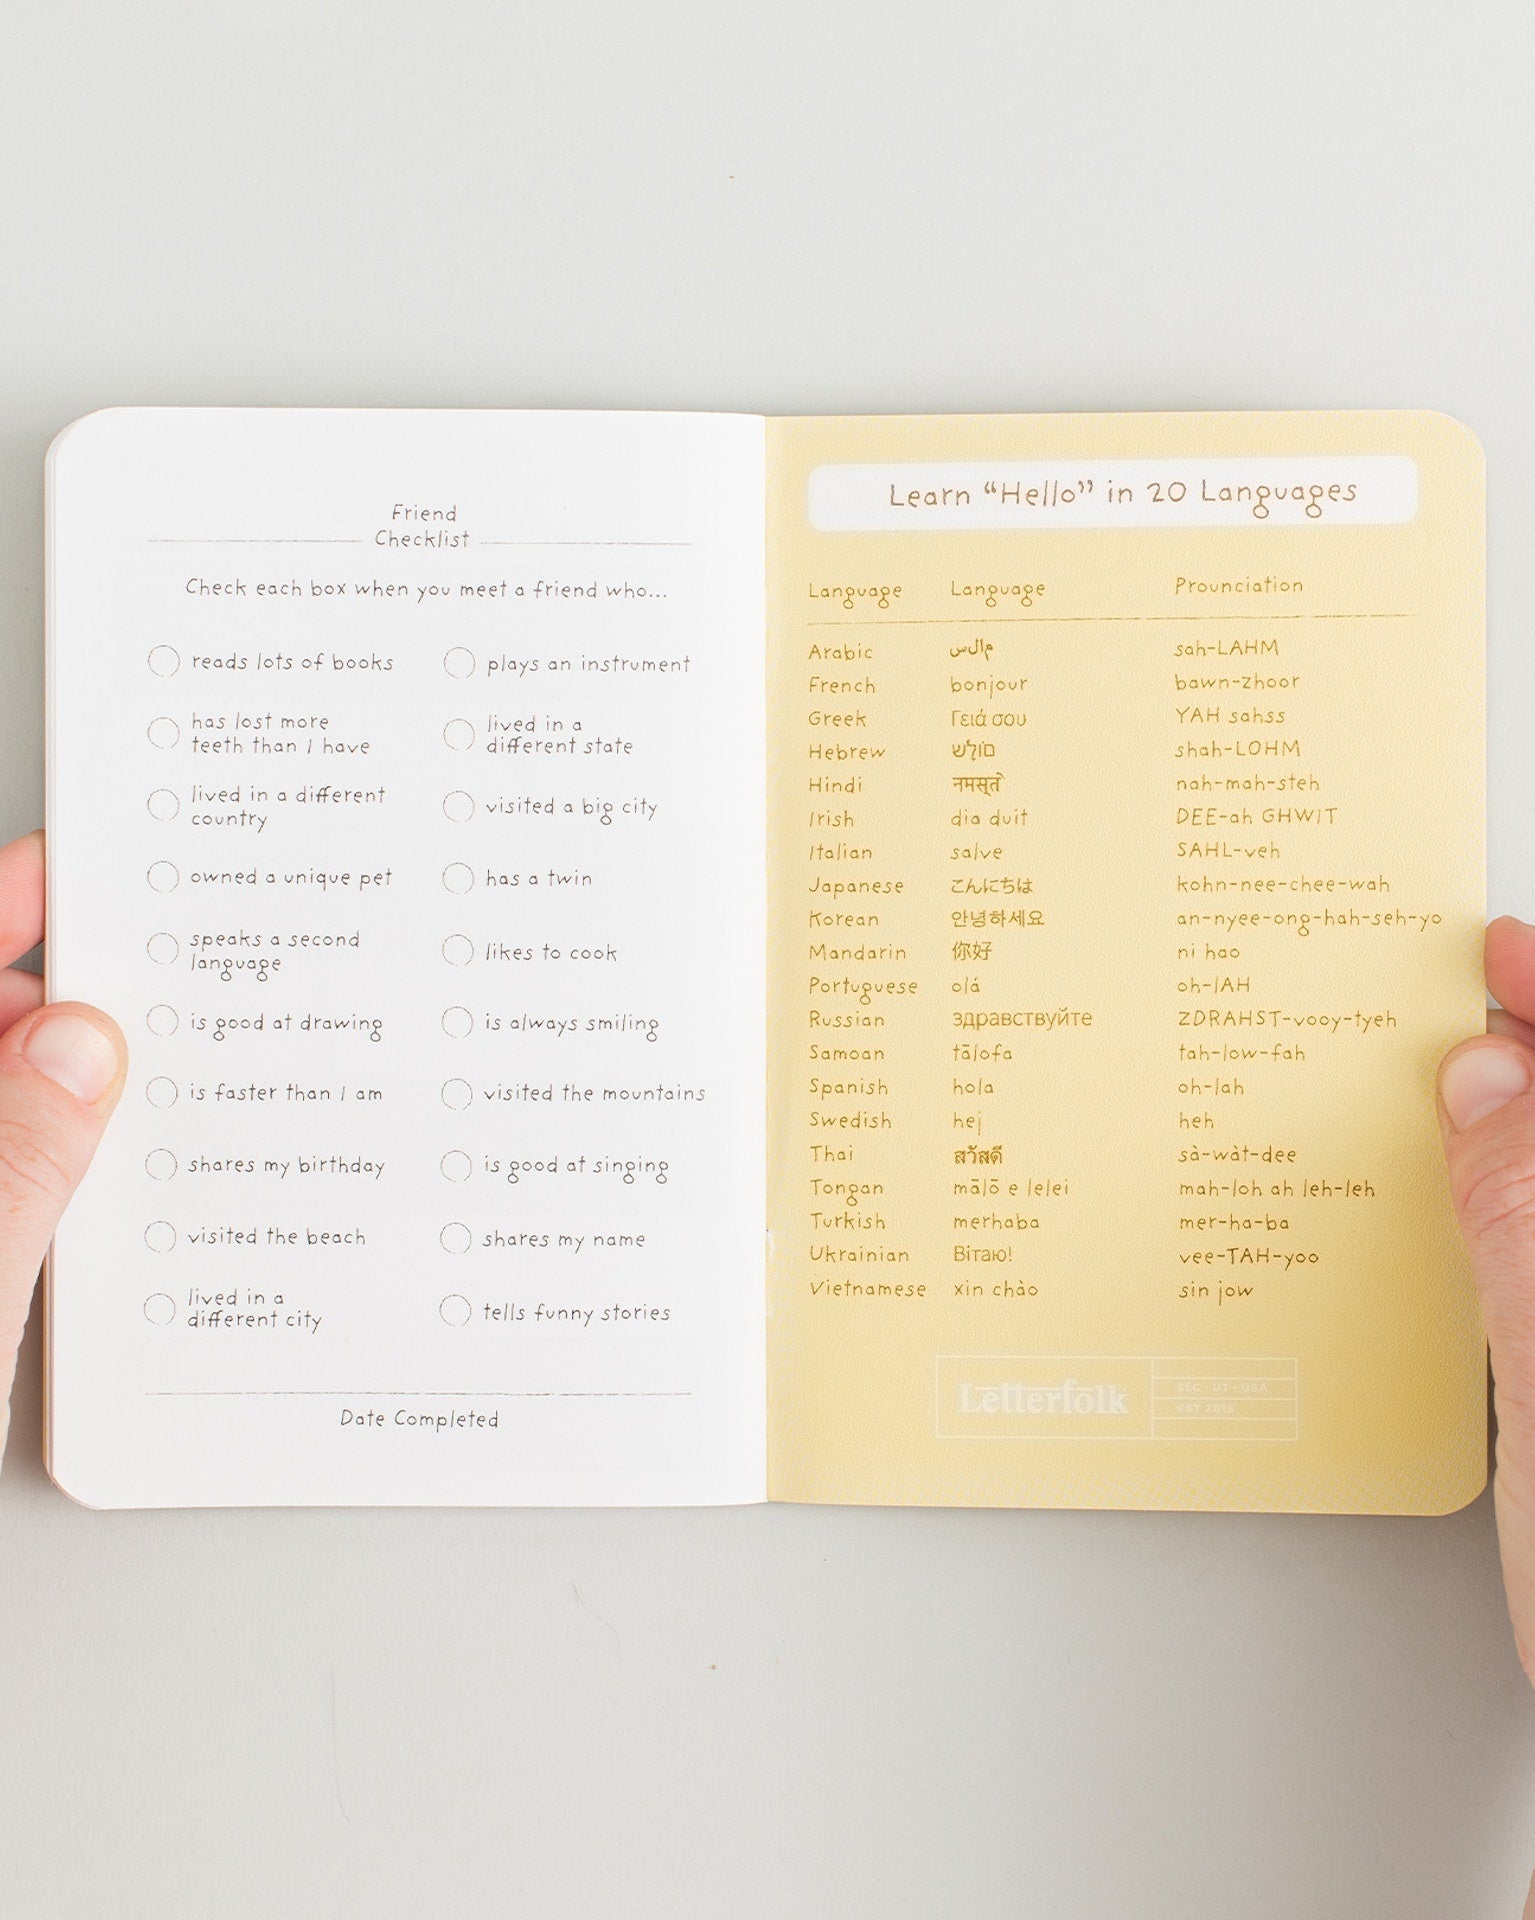 Friend
Checklist
Check each box when you meet a friend who...
reads lots of books
has lost more
teeth than I have
lived in a different
country
owned a unique pet
speaks a second
language
is good at drawing
is faster than I am
shares my birthday
visited the beach
lived in a
different city
plays an instrument
lived in a
different state
visited a big city
has a twin
likes to cook
is always smiling
visited the mountains
is good at singing
shares my name
tells funny stories
Date Completed
Learn “Hello” in 20 Languages
Language Language Prounciation
Arabic مالس sah-LAHM
French bonjour bawn-zhoor
Greek Γειά σου YAH sahss
Hebrew םוֹלָשׁ shah-LOHM
Hindi नमस्ते nah-mah-steh
Irish dia duit DEE-ah GHWIT
Italian salve SAHL-veh
Japanese こんにちは kohn-nee-chee-wah
Korean 안녕하세요 an-nyee-ong-hah-seh-yo
Mandarin 你好 ni hao
Portuguese olá oh-lAH
Russian здравствуйте ZDRAHST-vooy-tyeh
Samoan tālofa tah-low-fah
Spanish hola oh-lah
Swedish hej heh
Thai สวัสดี sà-wàt-dee
Tongan mālō e lelei mah-loh ah leh-leh
Turkish merhaba mer-ha-ba
Ukrainian Вітаю! vee-TAH-yoo
Vietnamese xin chào sin jow
Letterfolk
SLC · UT · USA
EST 2015